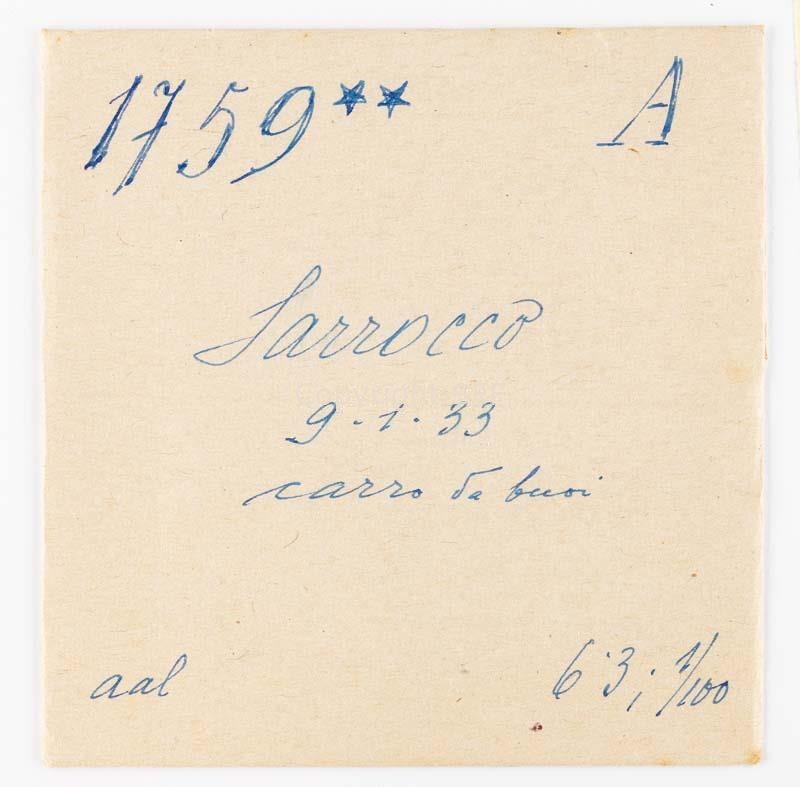 1759** A
Sarrocco
9-1-33
carro da buoi
aal 6·3; 1/100